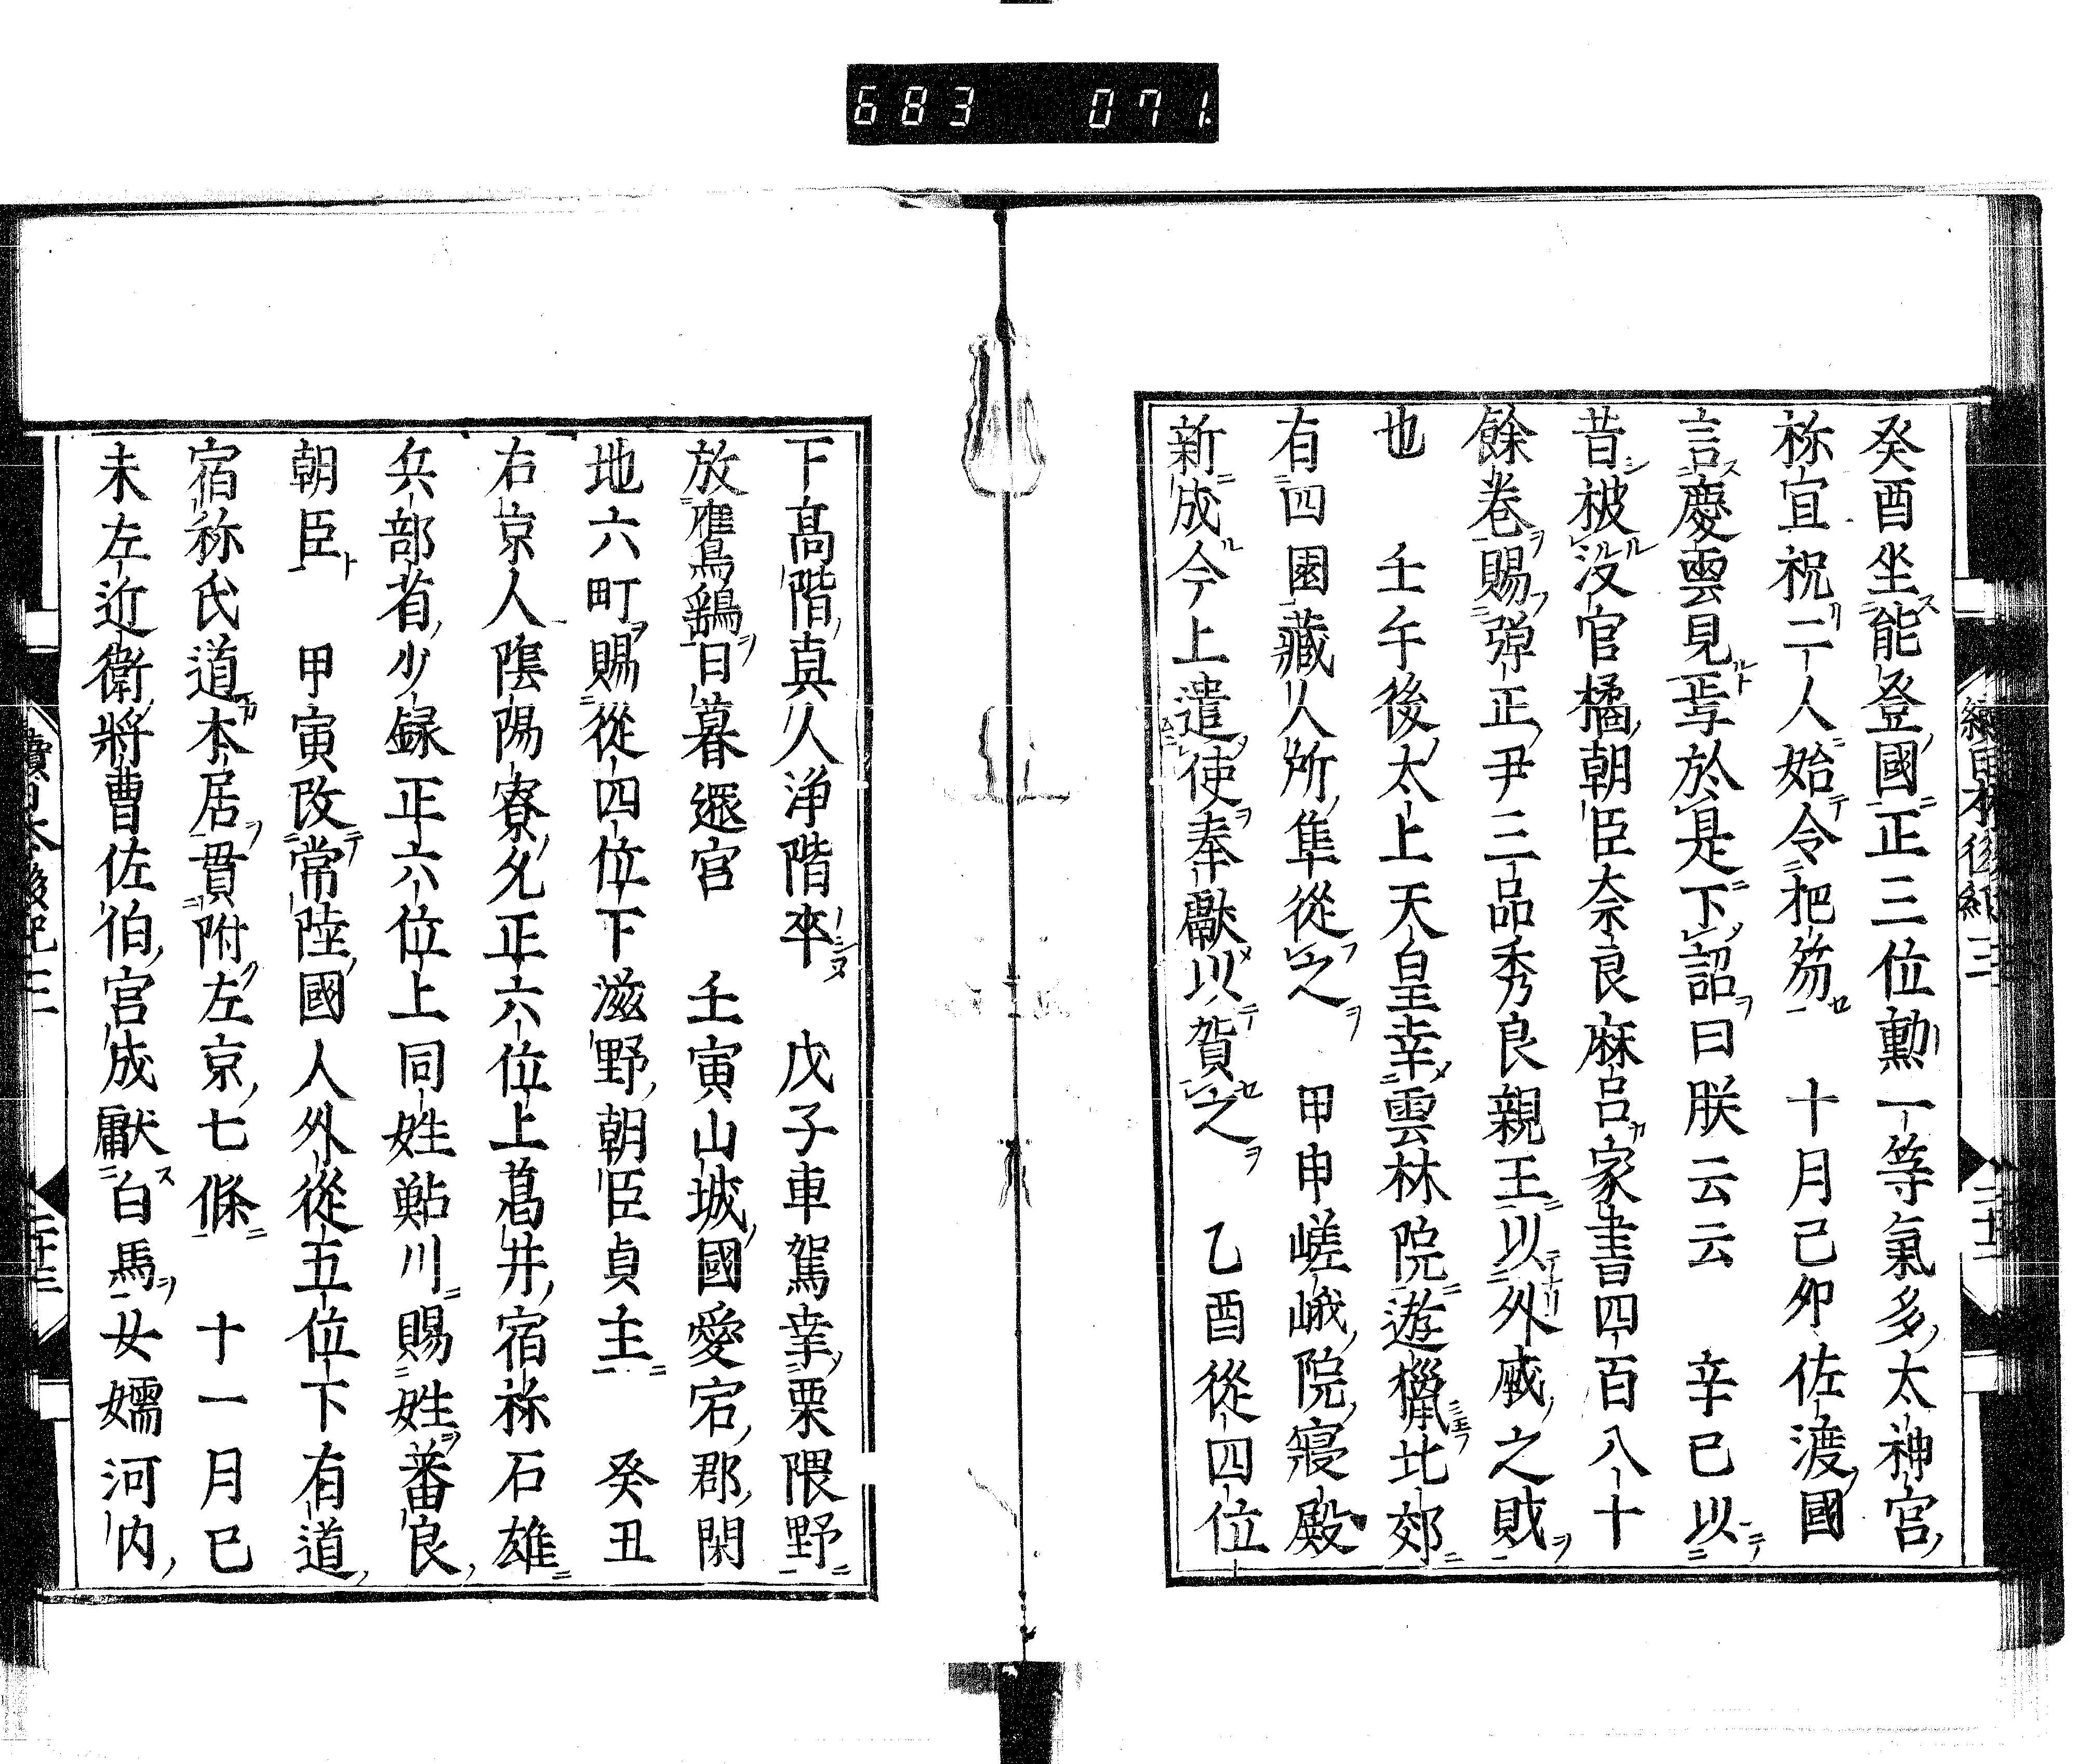 683 071
癸酉坐能登國正三位勲一等氣多太神宮
祢宜祝二人始令把笏 十月己卯佐渡國
言慶雲見焉於是下詔曰朕云云 辛巳以
昔被没官橘朝臣奈良麻呂家書四百八十
餘卷賜彈正尹三品秀良親王以外戚之財
也 壬午後太上天皇幸雲林院遊獵北郊
有四園藏人所隼從之 甲申嵯峨院寢殿
新成今上遣使奉獻以賀之 乙酉從四位
下髙階真人浄階卒 戊子車駕幸栗隈野
放鷹鷂日暮還宮 壬寅山城國愛宕郡閑
地六町賜從四位下滋野朝臣貞主 癸丑
右京人陰陽寮允正六位上葛井宿祢石雄
兵部省少録正六位上同姓鮎川賜姓蕃良
朝臣 甲寅改常陸國人外從五位下有道
宿祢氏道本居貫附左京七條 十一月己
未左近衛將曹佐伯宮成獻白馬女嬬河内